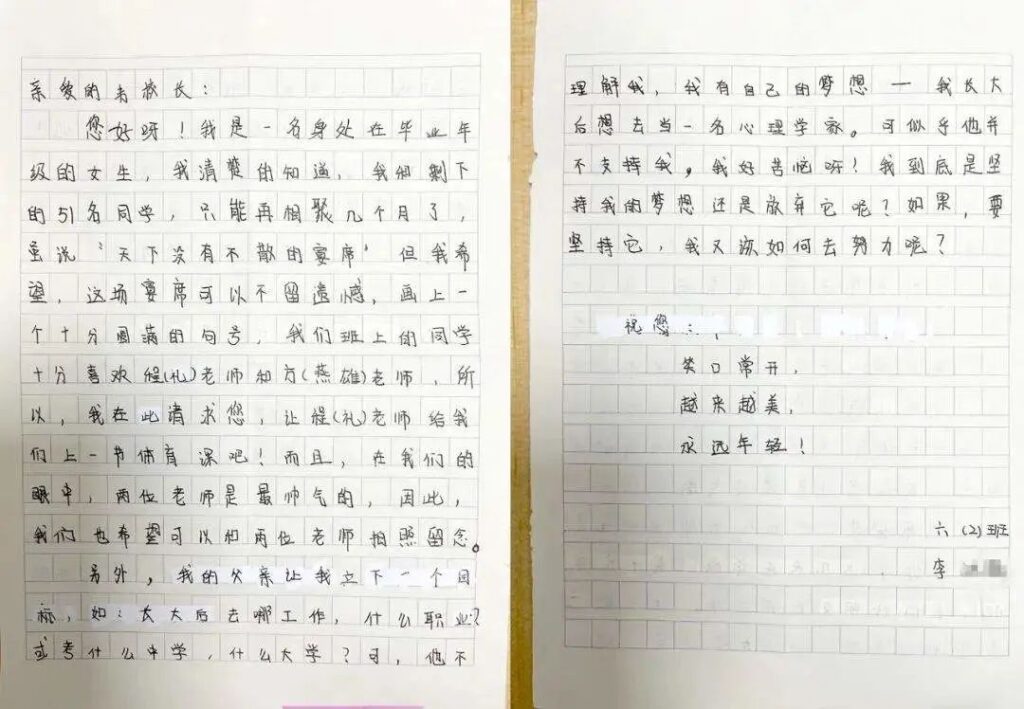 亲爱的肖校长：
您好呀！我是一名身处在毕业年
级的女生，我清楚的知道，我和剩下
的51名同学，只能再相聚几个月了，
虽说“天下没有不散的宴席”但我希
望，这场宴席可以不留遗憾，画上一
个十分圆满的句号，我们班上的同学
十分喜欢程(礼)老师和方(燕雄)老师，所
以，我在此请求您，让程(礼)老师给我
们上一节体育课吧！而且，在我们的
眼中，两位老师是最帅气的，因此，
我们也希望可以和两位老师拍照留念。
另外，我的父亲让我立下一个目
标，如：大大后去哪工作，什么职业？
或考什么中学，什么大学？可，他不
理解我，我有自己的梦想——我长大
后想去当一名心理学家。可似乎他并
不支持我，我好苦恼呀！我到底是坚
持我的梦想还是放弃它呢？如果，要
坚持它，我又该如何去努力呢？
祝您：
笑口常开，
越来越美，
永远年轻！
六(2)班
李